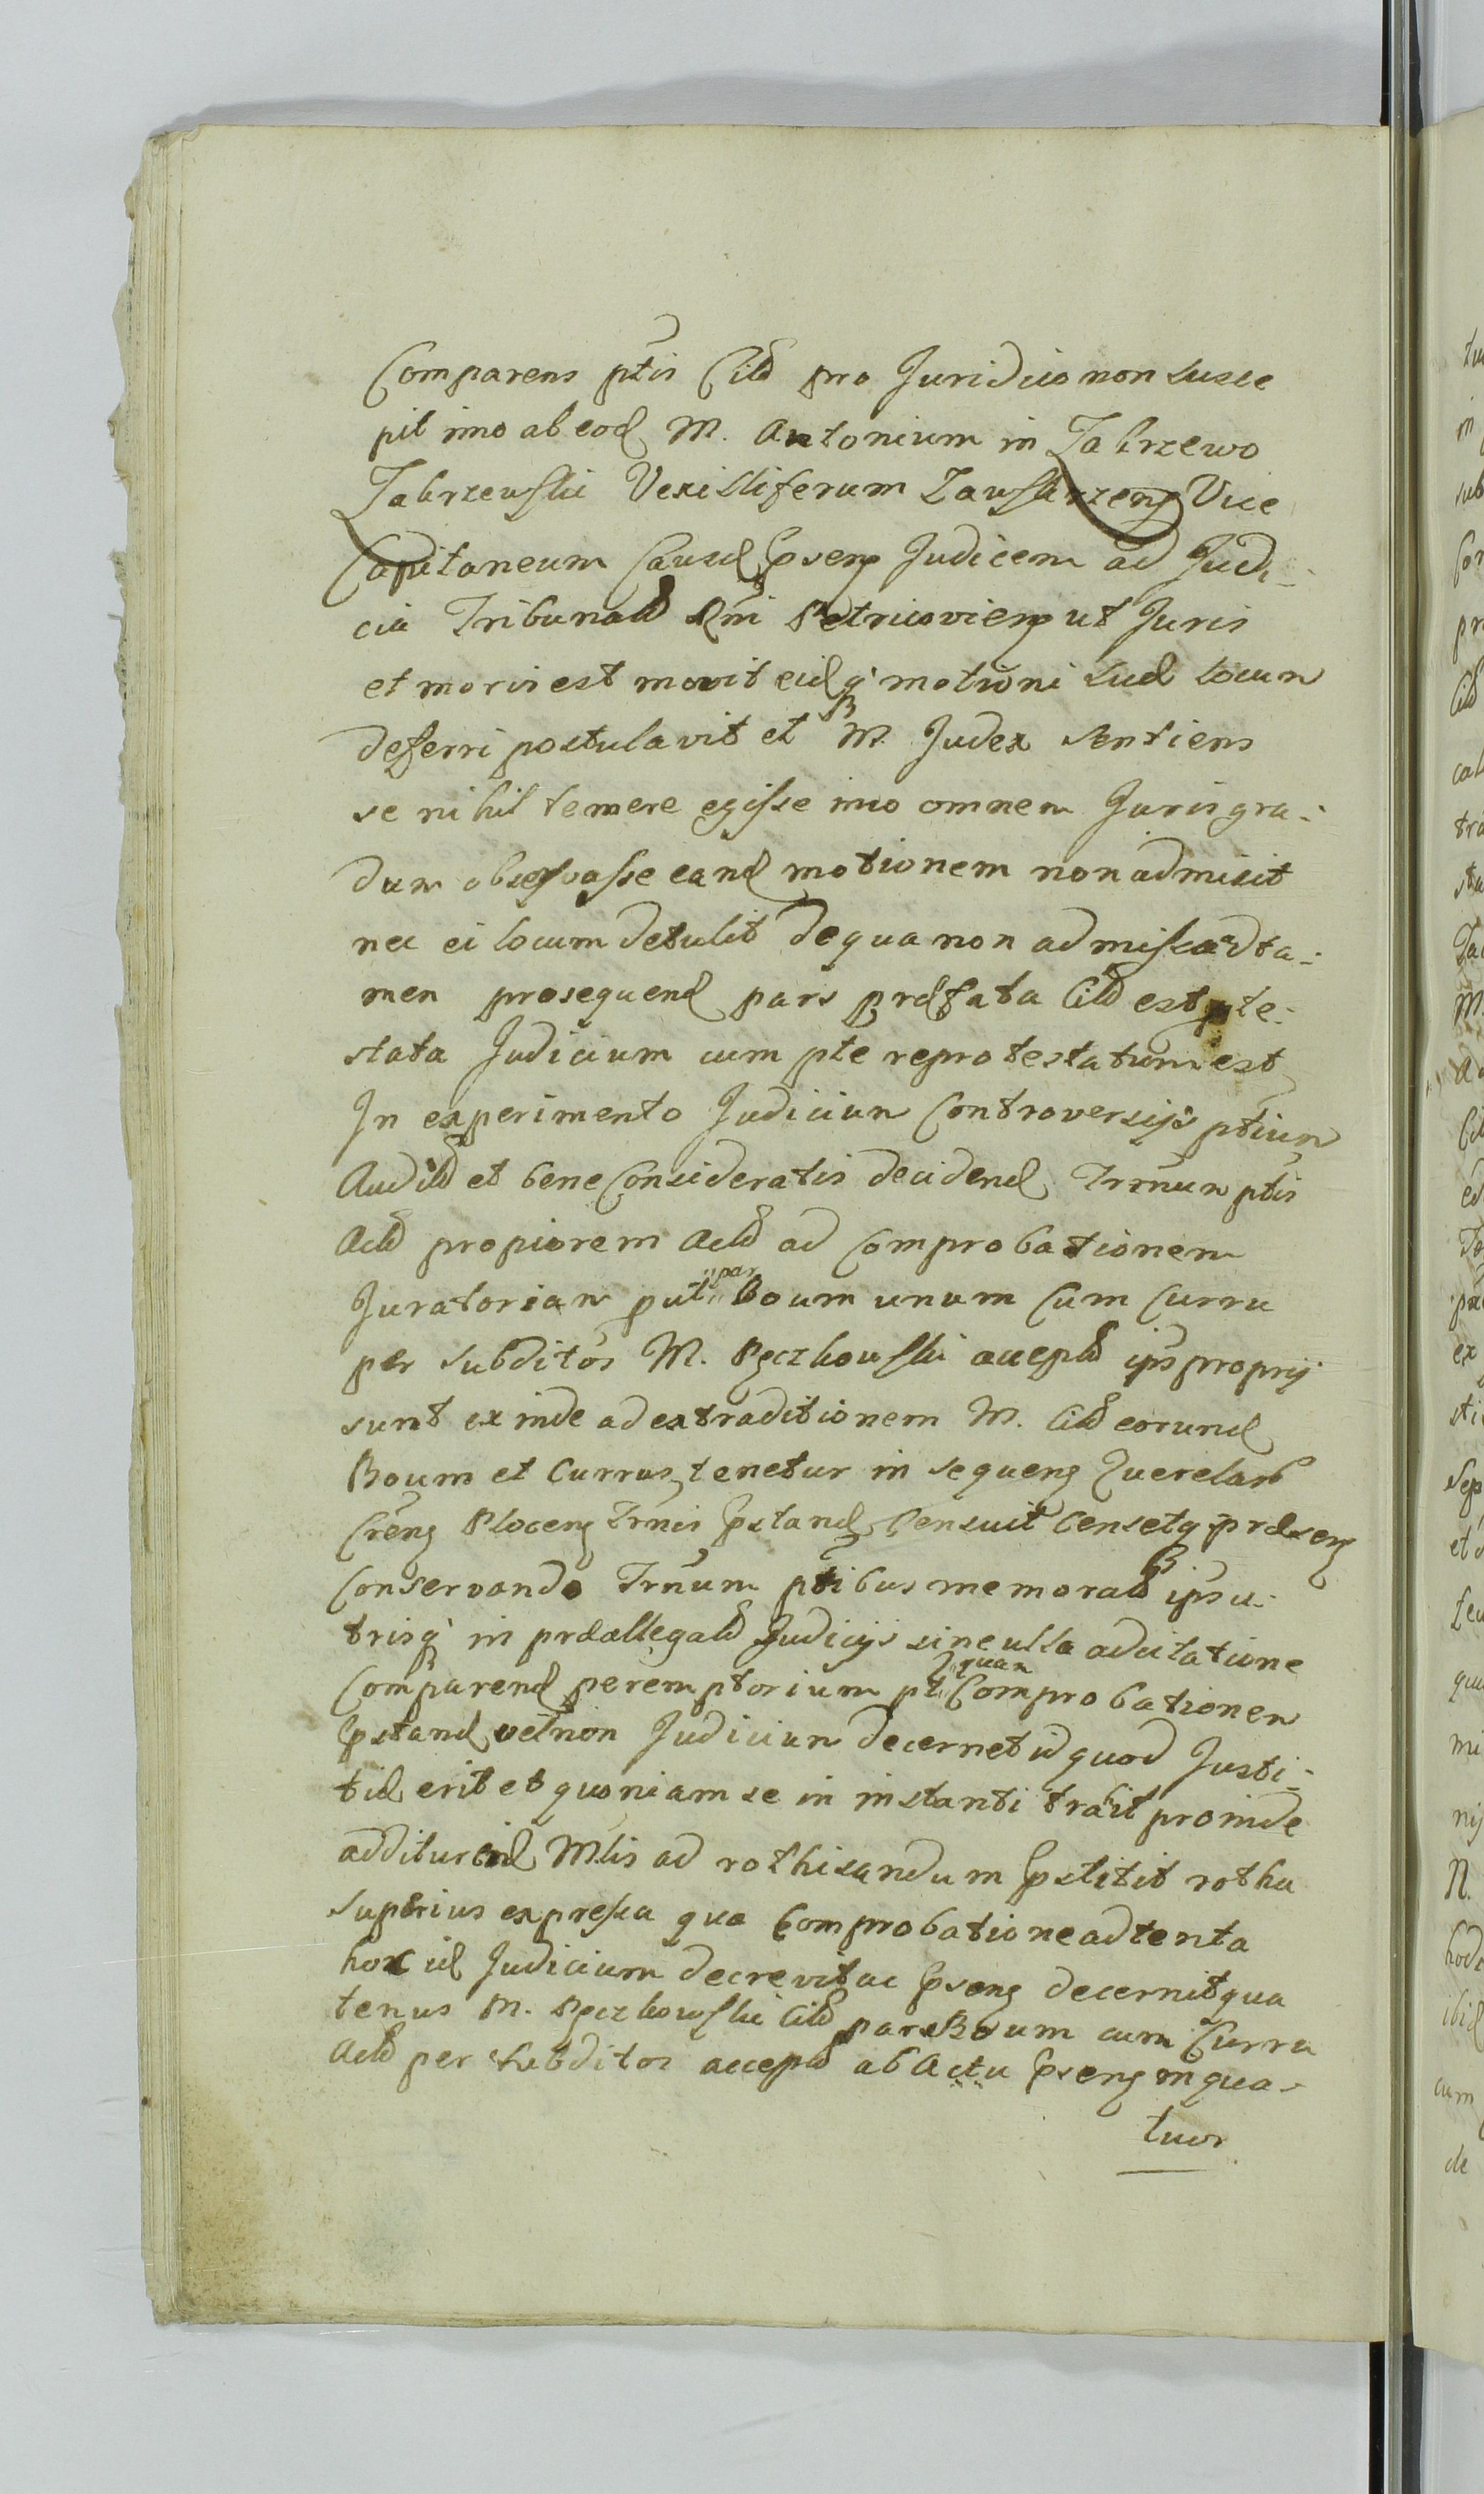 Comparens ptis Citæ pro Juridico non susce
pit imo ab eod M. Antonium in Zabrzewo
Zabrzewski Vexilliferum Zawskrzens Vice
Capitaneum Causæ psens Judicem ad Judi-
cia Tribunalis Rni Petricoviens ut Juris
et moris est movit eidq motioni suæ locum
deferri postulavit et M. Judex sentiens
se nihil temere egisse imo omnem Juris gra-
dum observasse eand motionem non admisit
nec ei locum detulit de qua non admissa ad ta-
men prosequend pars præfata Citæ est pte-
stata Judicium cum pte reprotestatum est
In experimento Judicium Controversijs ptium
Auditis et bene Consideratis decidend Trnum ptis
Acteæ propiorem Acteæ ad Comprobationem
Juratoriam put par Boum unum cum Curru
per subditos M. Pęczkowski accept ips proprij
sunt exinde ad extraditionem M. Cit eorund
Boum et Currus tenetur in sequens Querelarum
Crens Plocens Trnis pstand Censuit Censetq præsens
Conservando Trnum ptibus memorat ips u-
trisq in præallegatis Judicijs sine ulla adcitatione
Comparend peremptorium pt quam Comprobationem
pstand vel non Judicium decernet id quod Justi-
tiæ erit et quoniam se in instanti trait proinde
additur eid Mlis ad rothisandum pstitit rotha
superius expressa qua Comprobatione adtenta
hoc id Judicium decrevit ac psens decernit qua
tenus M. Pęczkowski Cit par Boum cum Curru
Acteæ per subditos accept ab Actu psens in qua-
tuor